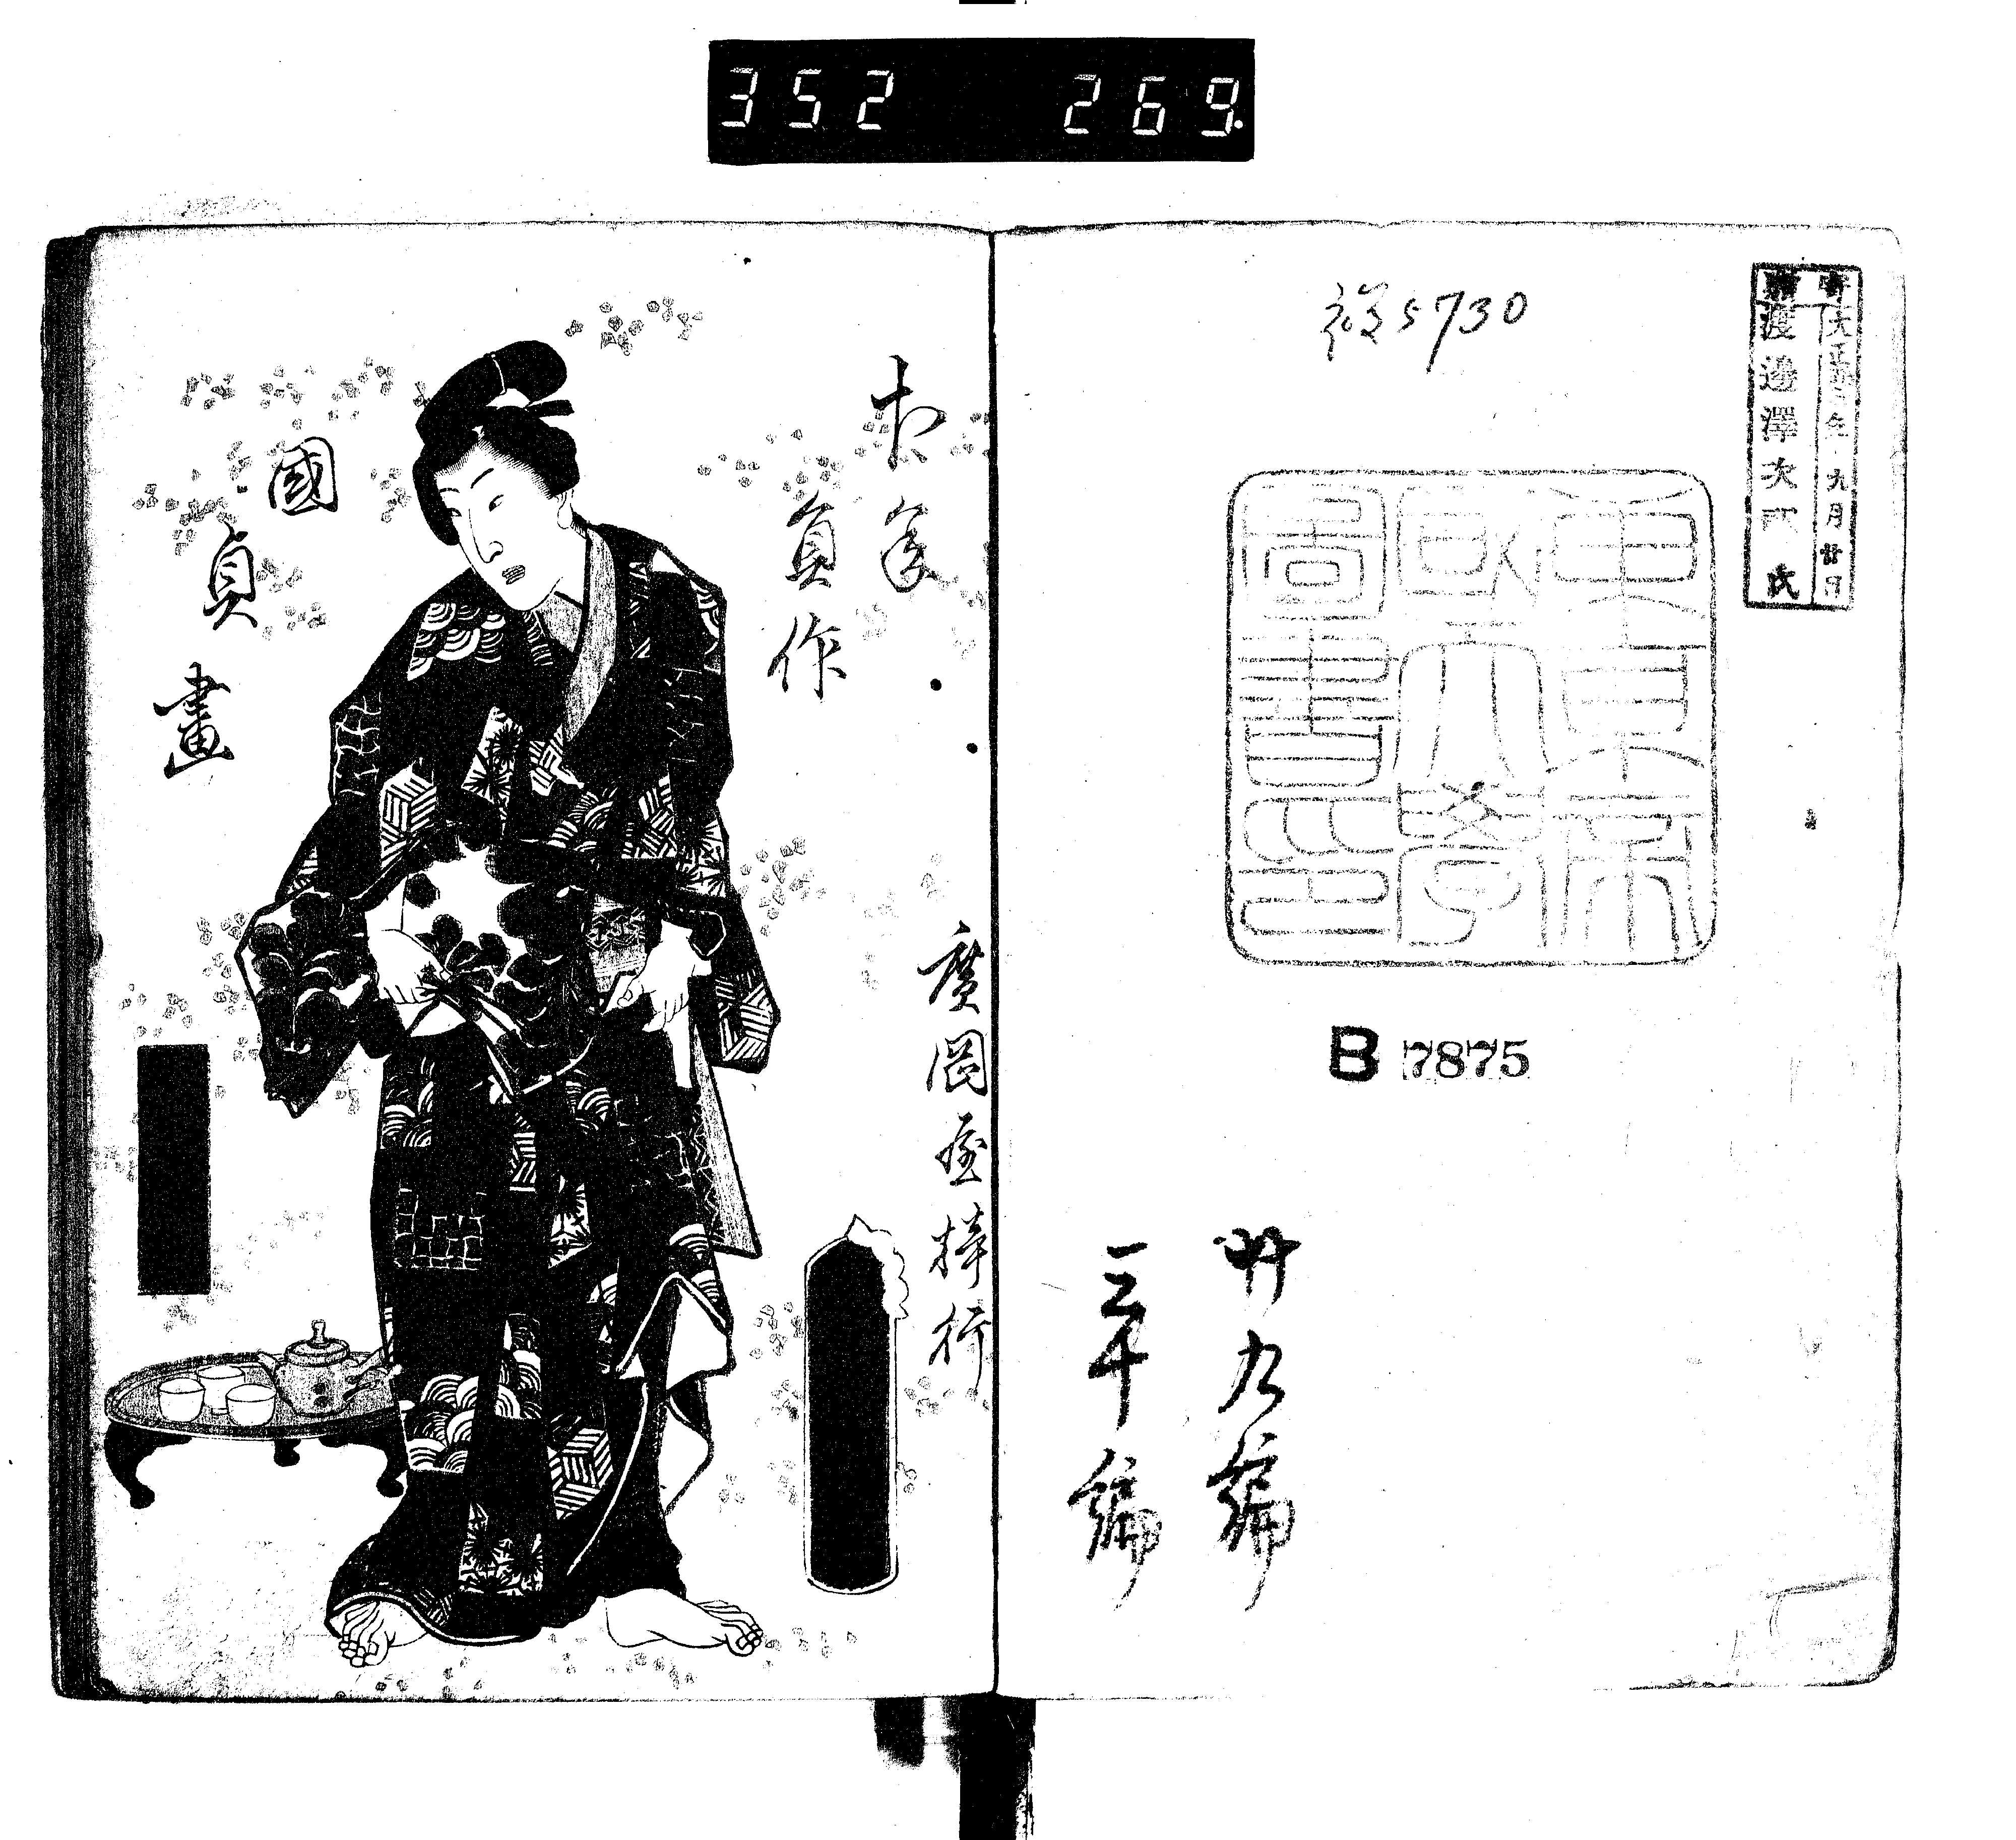 352 269
寄贈
大正 年九月廿日
渡邊澤次郎氏
5730
東京帝
國大學
圖書之印
B 7875
廿九編
三十編
員作
廣岡屋梓行
國貞畫